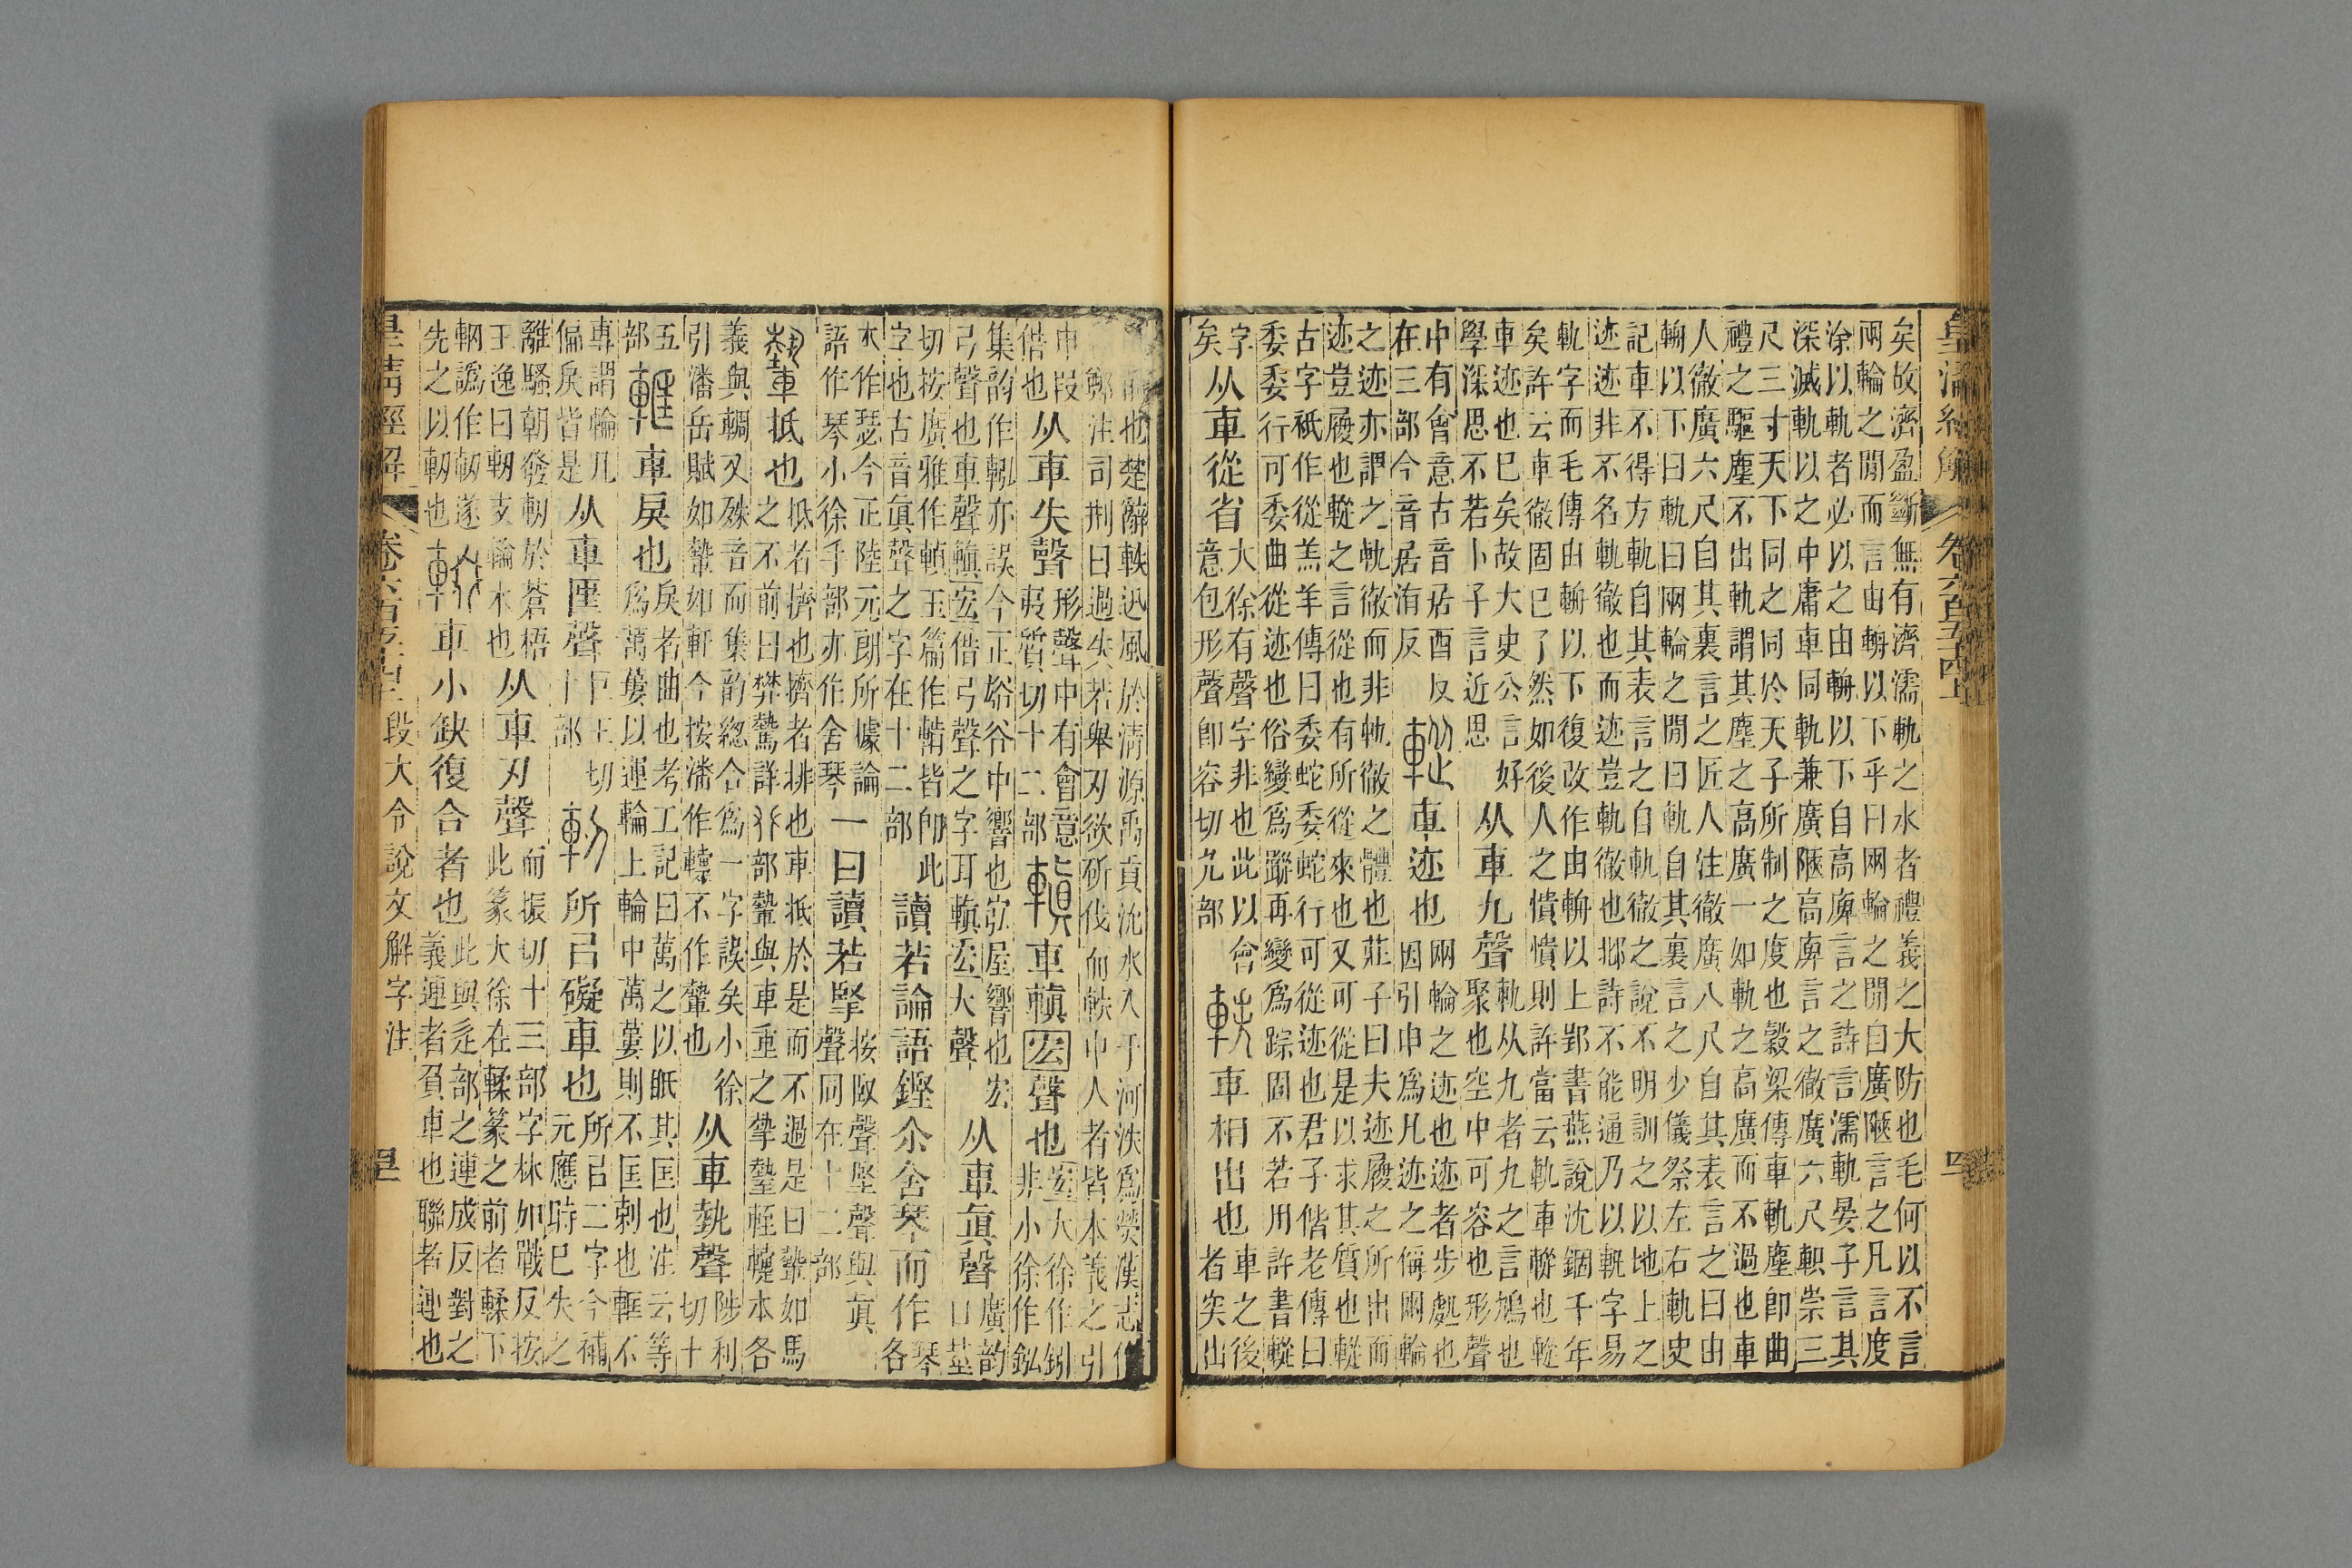 皇清經解 卷六百五十四上 四
矣故濟盈斷無有濟濡軌之水者禮義之大防也毛何以不言
兩輪之閒而言由輈以下乎曰网輪之閒自廣陿言之凡言度
涂以軌者必以之由輈以下自高庳言之詩言濡軌晏子言其
深滅軌以之中庸車同軌兼廣陿高庳言之徹廣六尺軹崇三
尺三寸天下同之同於天子所制之度也穀梁傳車軌塵卽曲
禮之驅塵不出軌謂其塵之高廣一如軌之高廣而不過也車
人徹廣六尺自其裏言之匠人注徹廣八尺自其表言之曰由
輈以下曰軌曰网輪之閒曰軌自其裏言之少儀祭左右軌史
記車不得方軌自其表言之自軌徹之說不明訓之以地上之
迹迹非不名軌徹也而迹豈軌徹也邶詩不能通乃以軓字易
軌字而毛傳由輈以下復改作由輈以上郢書燕說沈錮千年
矣許云車徹固巳了然如後人之憒憒則許當云軌車䡮也䡮
車迹也巳矣故大史公言好
學深思不若卜子言近思
从車九聲
軌从九者九之言鳩也
聚也空中可容也形聲
中有會意古音居酉反
在三部今音居洧反
車迹也
网輪之迹也迹者步處也
因引申爲凡迹之偁网輪
之迹亦謂之軌徹而非軌徹之體也莊子曰夫迹履之所出而
迹豈履也䡮之言從也有所從來也又可從是以求其質也䡮
古字衹作從羔羊傳曰委蛇委蛇行可從迹也君子偕老傳曰
委委行可委曲從迹也俗變爲蹤再變爲踪固不若用許書䡮
字
矣
从車從省
大徐有聲字非也此以會
意包形聲卽容切九部
車相出也
車之後
者突出
前也楚辭軼迅風於淸源禹貢沇水入于河泆爲熒漢志作
鄭注司刑曰過失若舉刃欲斫伐而軼中人者皆本義之引
申叚
借也
从車失聲
形聲中有會意
夷質切十二部
車䡩宏聲也
大徐作
非小徐作
集韵作 亦誤今正峪谷中響也宖屋響也宏
弓聲也車聲䡩宏借弓聲之字耳䡩宏大聲
从車眞聲
廣韵
口莖
切按廣雅作䡩玉篇作輤皆卽此
字也古音眞聲之字在十二部
讀若論語鏗尒舍琴而作
琴
各
本作瑟今正陸元朗所據論
語作琴小徐手部亦作舍琴
一曰讀若掔
按臤聲堅聲與眞
聲同在十二部
抵也
抵者擠也擠者排也車抵於是而不過是曰 如馬
之不前曰樊驇詳 部 與車重之 本各
義與輖又殊音而集韵緫合爲一字誤矣小徐
引潘岳賦如 如軒今按潘作 不作 也
从車執聲
陟利
切十
五
部
車戾也
戾者曲也考工記曰萬之以眂其匡也注云等
爲萬蔞以運輪上輪中萬蔞則不匡刺也軭不
專謂輪凡
偏戾皆是
从車匩聲
巨王切
十部
所㠯礙車也
所㠯二字今補
元應時巳失之
離騷朝發軔於蒼梧
王逸曰軔支輪木也
从車刃聲
而振切十三部字林如戰反按
此篆大徐在輮篆之前者輮下
輞譌作軔遂
先之以軔也
車小缺復合者也
此與辵部之連成反對之
義連者負車也聯者連也
皇清經解 卷六百五十四上 段大令說文解字注